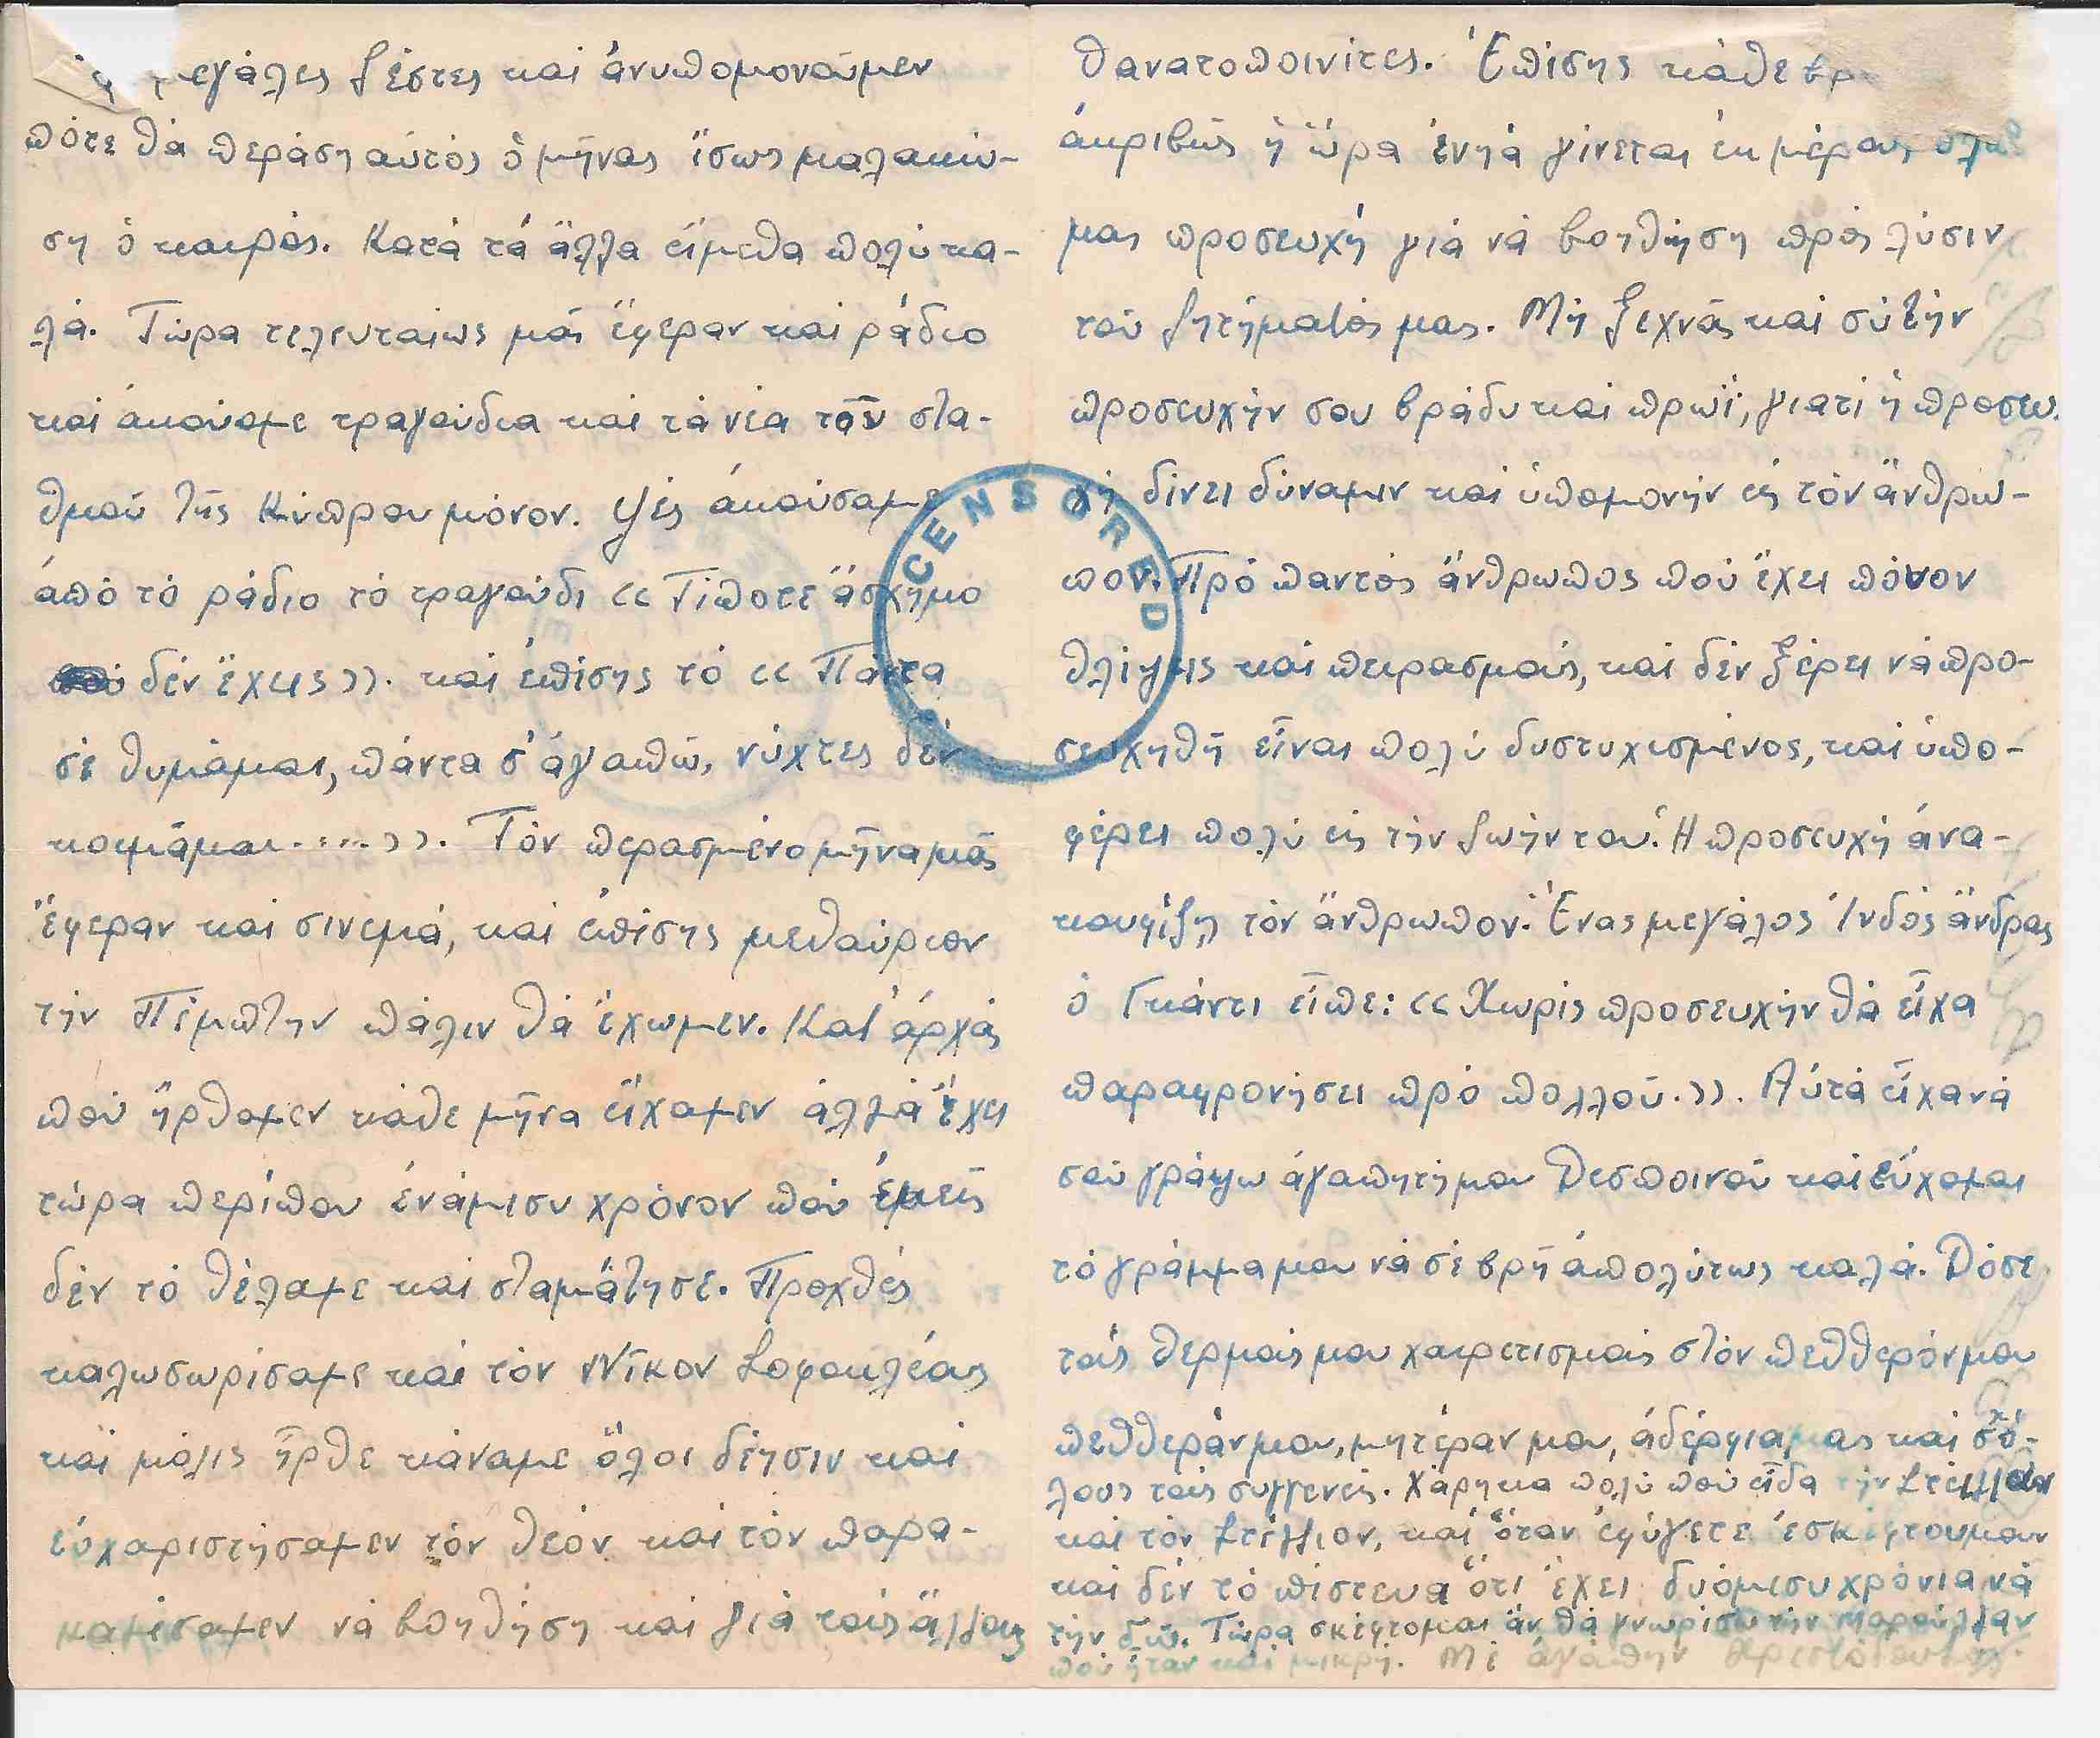 μεγάλες ζέστες καί ἀνυπομονοῦμεν
πότε θά περάση αὐτός ὁ μῆνας ἴσως μαλακώ-
ση ὁ καιρός. Κατά τά ἄλλα εἴμεθα πολύ κα-
λά. Τώρα τελευταίως μᾶς ἔφεραν καί ράδιο
καί ἀκούομε τραγούδια καί τά νέα τοῦ στα-
θμοῦ τῆς Κύπρου μόνον. Ψές ἀκούσαμε
ἀπό τό ράδιο τό τραγούδι «Τίποτε ἄσχημο
δέν ἔχεις». καί ἐπίσης τό «Πάντα
σέ θυμᾶμαι, πάντα σ' ἀγαπῶ, νύχτες δέν
κοιμᾶμαι.....». Τόν περασμένο μῆνα μᾶς
ἔφεραν καί σινεμά, καί ἐπίσης μεθαύριον
τήν Πέμπτην πάλιν θά ἔχωμεν. Κατ' ἀρχάς
πού ἤρθομεν κάθε μῆνα εἴχαμεν ἀλλά ἔχει
τώρα περίπου ἑνάμισυ χρόνον πού ἐμεῖς
δέν τό θέλαμε καί σταμάτησε. Προχθές
καλωσωρίσαμε καί τόν Νῖκον Σοφοκλέους
καί μόλις ἦρθε κάναμε ὅλοι δέησιν καί
εὐχαριστήσαμεν τόν Θεόν καί τόν παρα-
καλέσαμεν νά βοηθήση καί γιά τούς ἄλλους
θανατοποινίτες. Ἐπίσης κάθε
ἀκριβῶς ἡ ὥρα ἐνηά γίνεται ἐκ μέρους
μας προσευχή γιά νά βοηθήση πρός λύσιν
τοῦ ζητήματός μας. Μή ξεχνᾶς καί σύ τήν
προσευχήν σου βράδυ καί πρωί, γιατί ἡ προσευ-
χή δίνει δύναμιν καί ὑπομονήν εἰς τόν ἄνθρω-
πον. Πρό παντός ἄνθρωπος πού ἔχει πόνον
θλίψεις καί πειρασμούς, καί δέν ξέρει νά προ-
σευχηθῆ εἶναι πολύ δυστυχισμένος, καί ὑπο-
φέρει πολύ εἰς τήν ζωήν του. Ἡ προσευχή ἀνα-
κουφίζη τόν ἄνθρωπον. Ἕνας μεγάλος Ἰνδός ἄνδρας
ὁ Γκάντι εἶπε: «Χωρίς προσευχήν θά εἶχα
παραφρονήσει πρό πολλοῦ.». Αὐτά εἶχα νά
σοῦ γράψω ἀγαπητή μου Δεσποινοῦ καί εὔχομαι
τό γράμμα μου νά σέ βρῆ ἀπολύτως καλά. Δόσε
τούς θερμούς μου χαιρετισμούς στόν πεθθερόν μου
πεθθεράν μου, μητέραν μου, ἀδέρφια μας καί σ' ὅ-
λους τούς συγγενεῖς. Χάρηκα πολύ πού εἶδα τήν Στέλλαν
καί τόν Στέλλιον, καί ὅταν ἐφύγετε ἐσκέφτουμουν
καί δέν τό πίστευα ὅτι ἔχει δυόμισυ χρόνια νά
τήν δῶ. Τώρα σκέφτομαι ἄν θά γνωρίσω τήν Μαρούλλαν
πού ἦταν καί μικρή. Μέ ἀγάπην
CENSORED